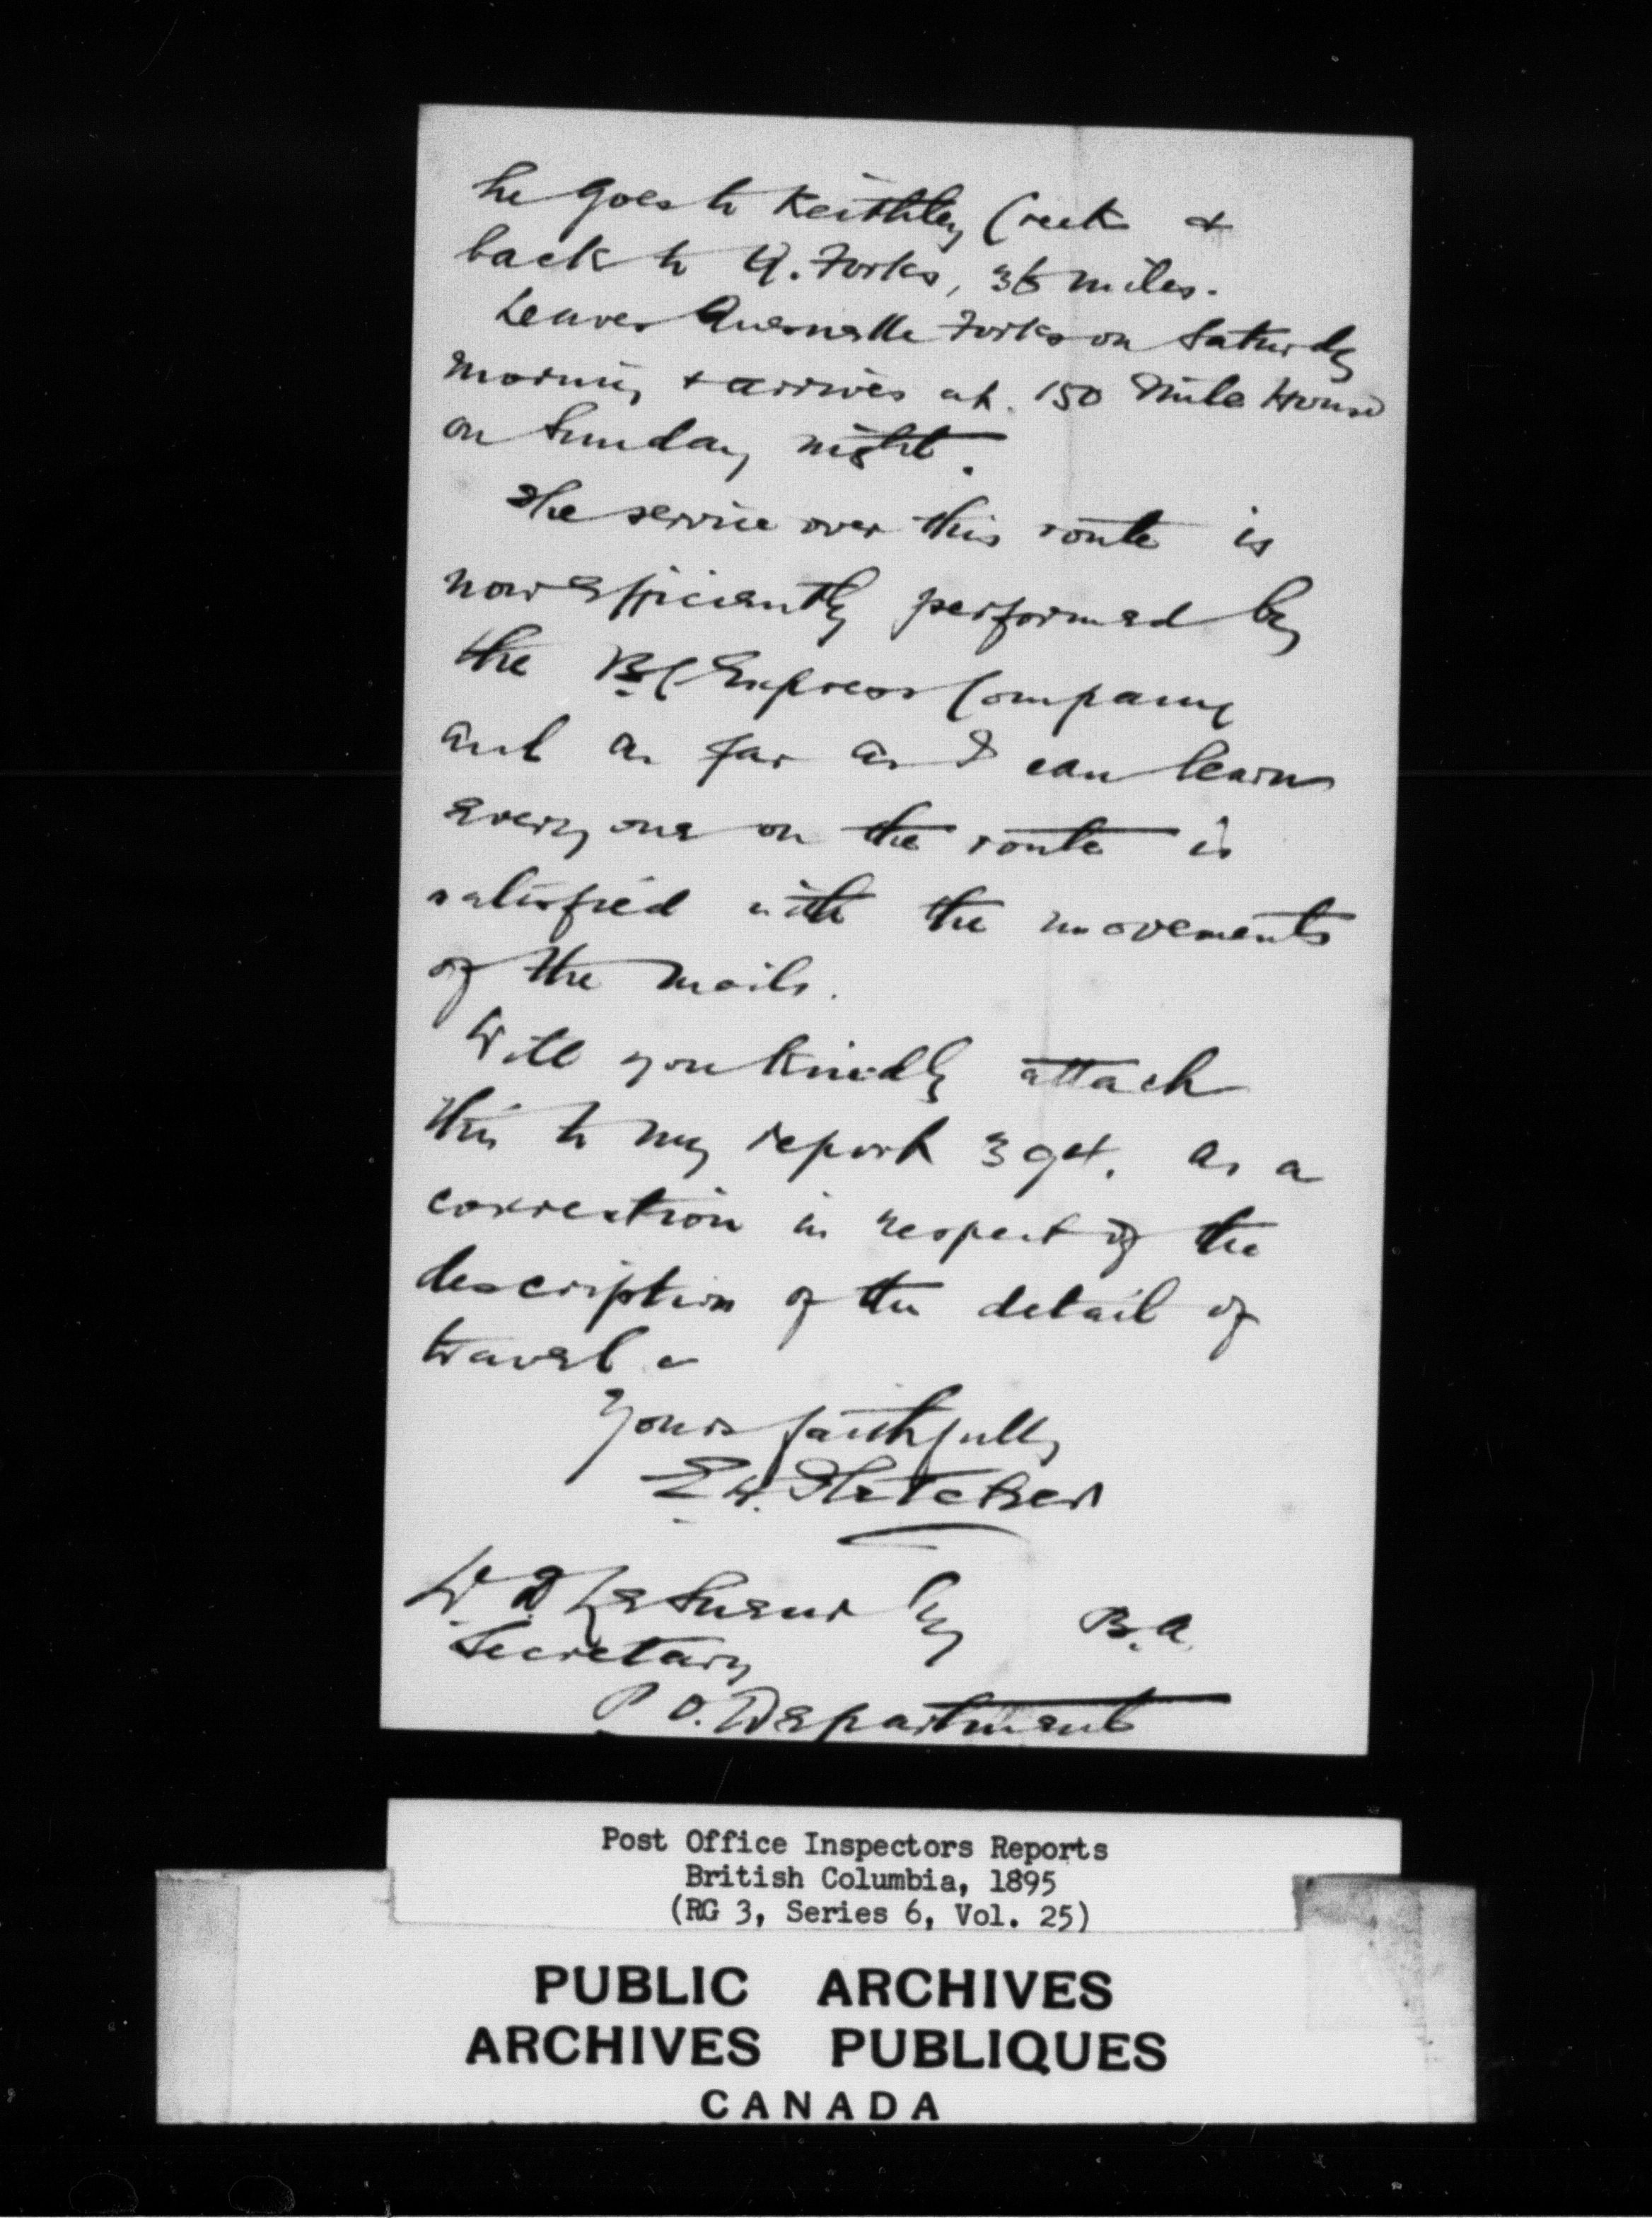 he goes to Keithley Creek &
back to Q. Forks, 36 miles.
Leaves Quesnelle Forks on Saturday
morning & arrives at 150 Mile House
on Sunday night.
The service over this route is
now efficiently performed by
the BC Express Company
and as far as I can learn
every one on the route is
satisfied with the movements
of the mails.
Will you kindly attach
this to my report 394. as a
correction in respect of the
description of the detail of
travel
Yours faithfully
E.H. Fletcher
W. D. LeSueur Esq B.A.
Secretary
P.O. Department
Post Office Inspectors Reports
British Columbia, 1895
(RG 3, Series 6, Vol. 25)
PUBLIC ARCHIVES
ARCHIVES PUBLIQUES
CANADA